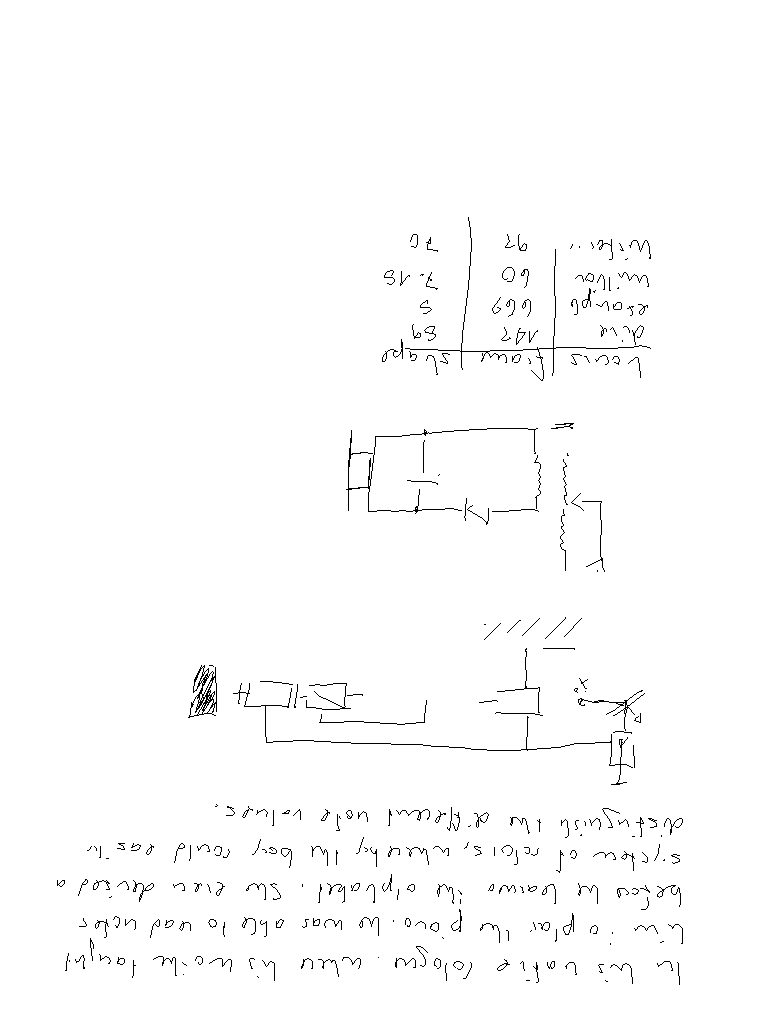 In his native Cologne. when his mothe taught
him to play the piano. he was able to read notes
before he learns the alphabet. She even devised a
system of colors, whereby the boy could eas in
distinguish the different note values.
x
fram shape
dire 142 89
example 669 5
60 7.15
92 70